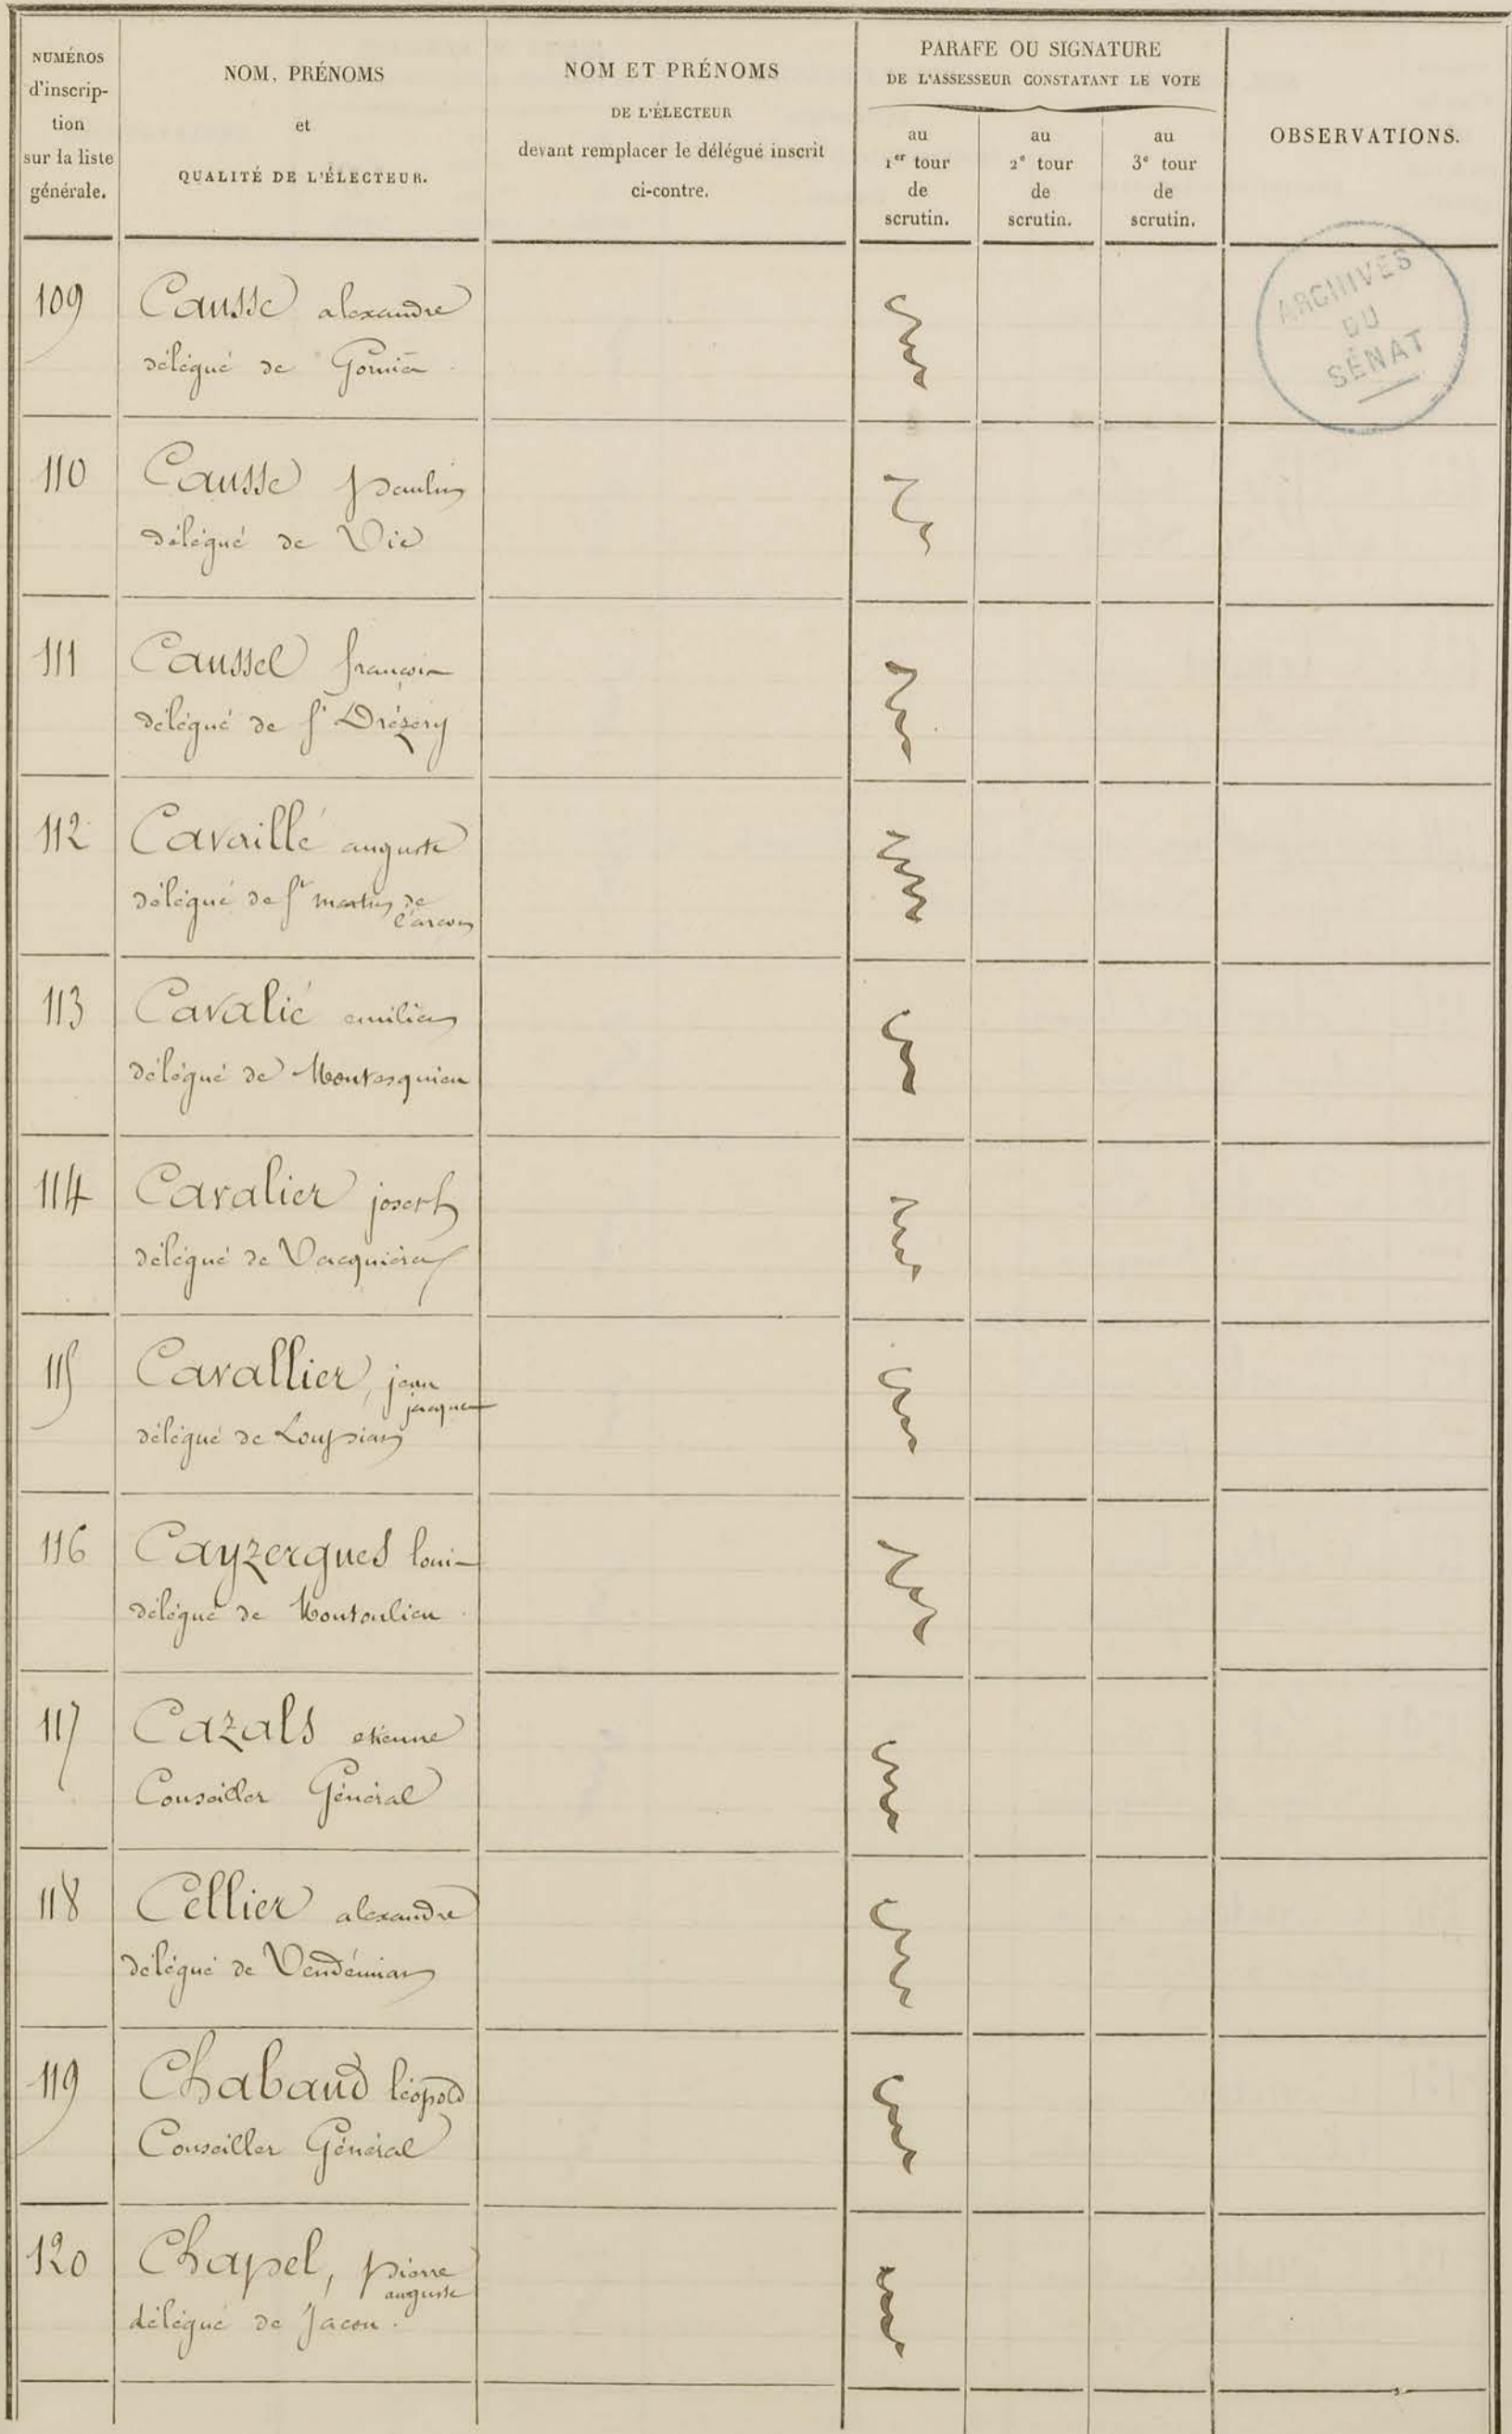 NUMÉROS
d'inscrip-
tion
sur la liste
générale.
NOM, PRÉNOMS
et
QUALITÉ DE L'ÉLECTEUR.
NOM ET PRÉNOMS
DE L'ÉLECTEUR
devant remplacer le délégué inscrit
ci-contre.
PARAFE OU SIGNATURE
DE L'ASSESSEUR CONSTATANT LE VOTE
au
1er tour
de
scrutin.
au
2e tour
de
scrutin.
au
3e tour
de
scrutin.
OBSERVATIONS.
ARCHIVES
DU
SÉNAT
109 Causse alexandre
délégué de Gorniès
110 Causse paulin
délégué de Vic
111 Caussel françois
délégué de St Drézéry
112 Cavaillé auguste
délégué de St martin de
l'arçon
113 Cavalié emilien
délégué de Montesquieu
114 Cavalier joseph
délégué de Vacquières
115 Cavallier, jean
jacques
délégué de Loupian
116 Cayzergues louis
délégué de Montoulieu
117 Cazals etienne
Conseiller Général
118 Cellier alexandre
délégué de Vendémian
119 Chabaud léopold
Conseiller Général
120 Chapel, pierre
auguste
délégué de Jacou.